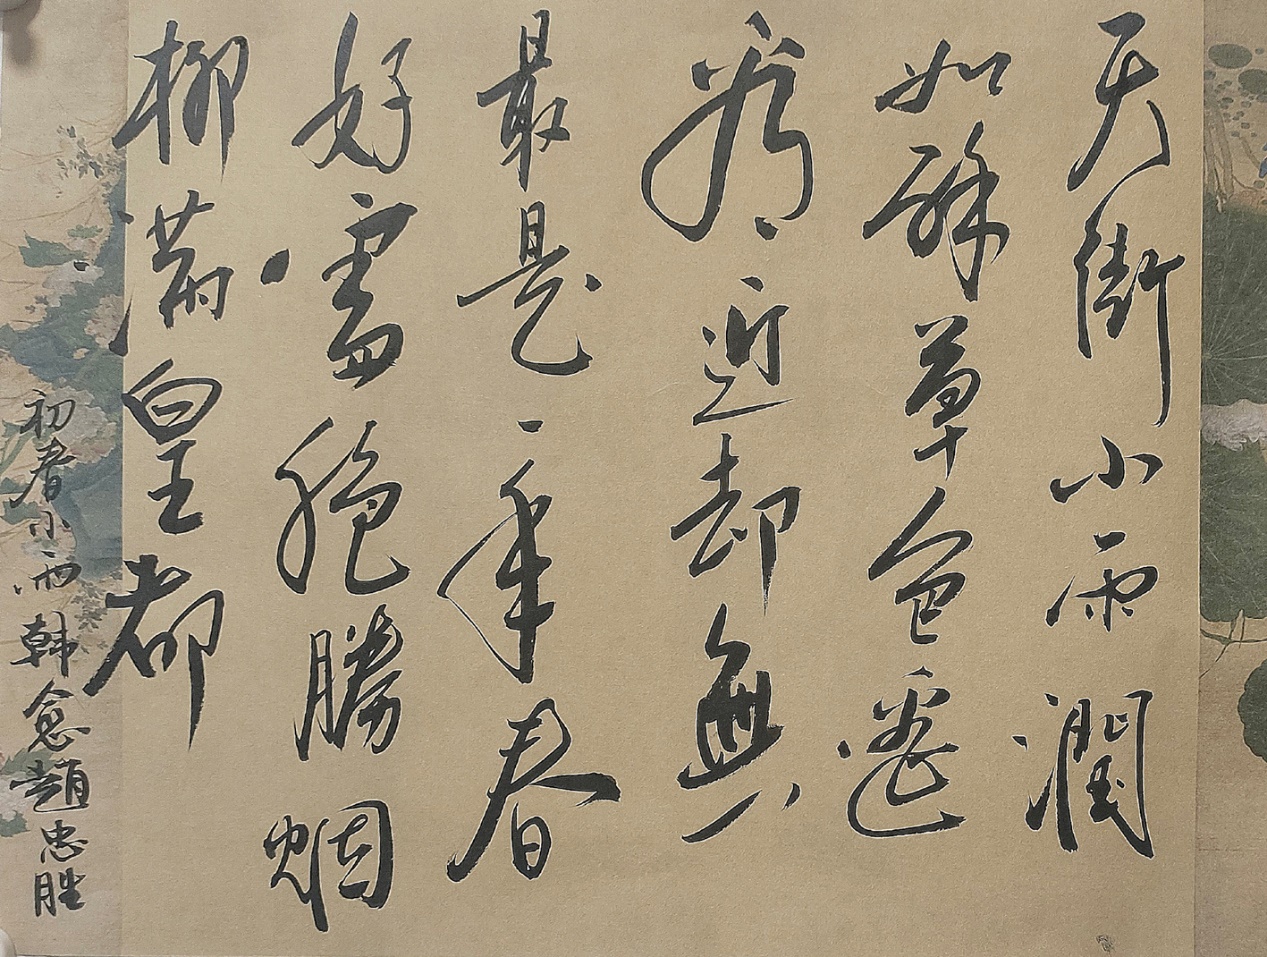 天街小雨潤
如酥草色遥
看近却無
最是一年春
好處絶勝烟
柳滿皇都
初春小雨韩愈趙忠胜